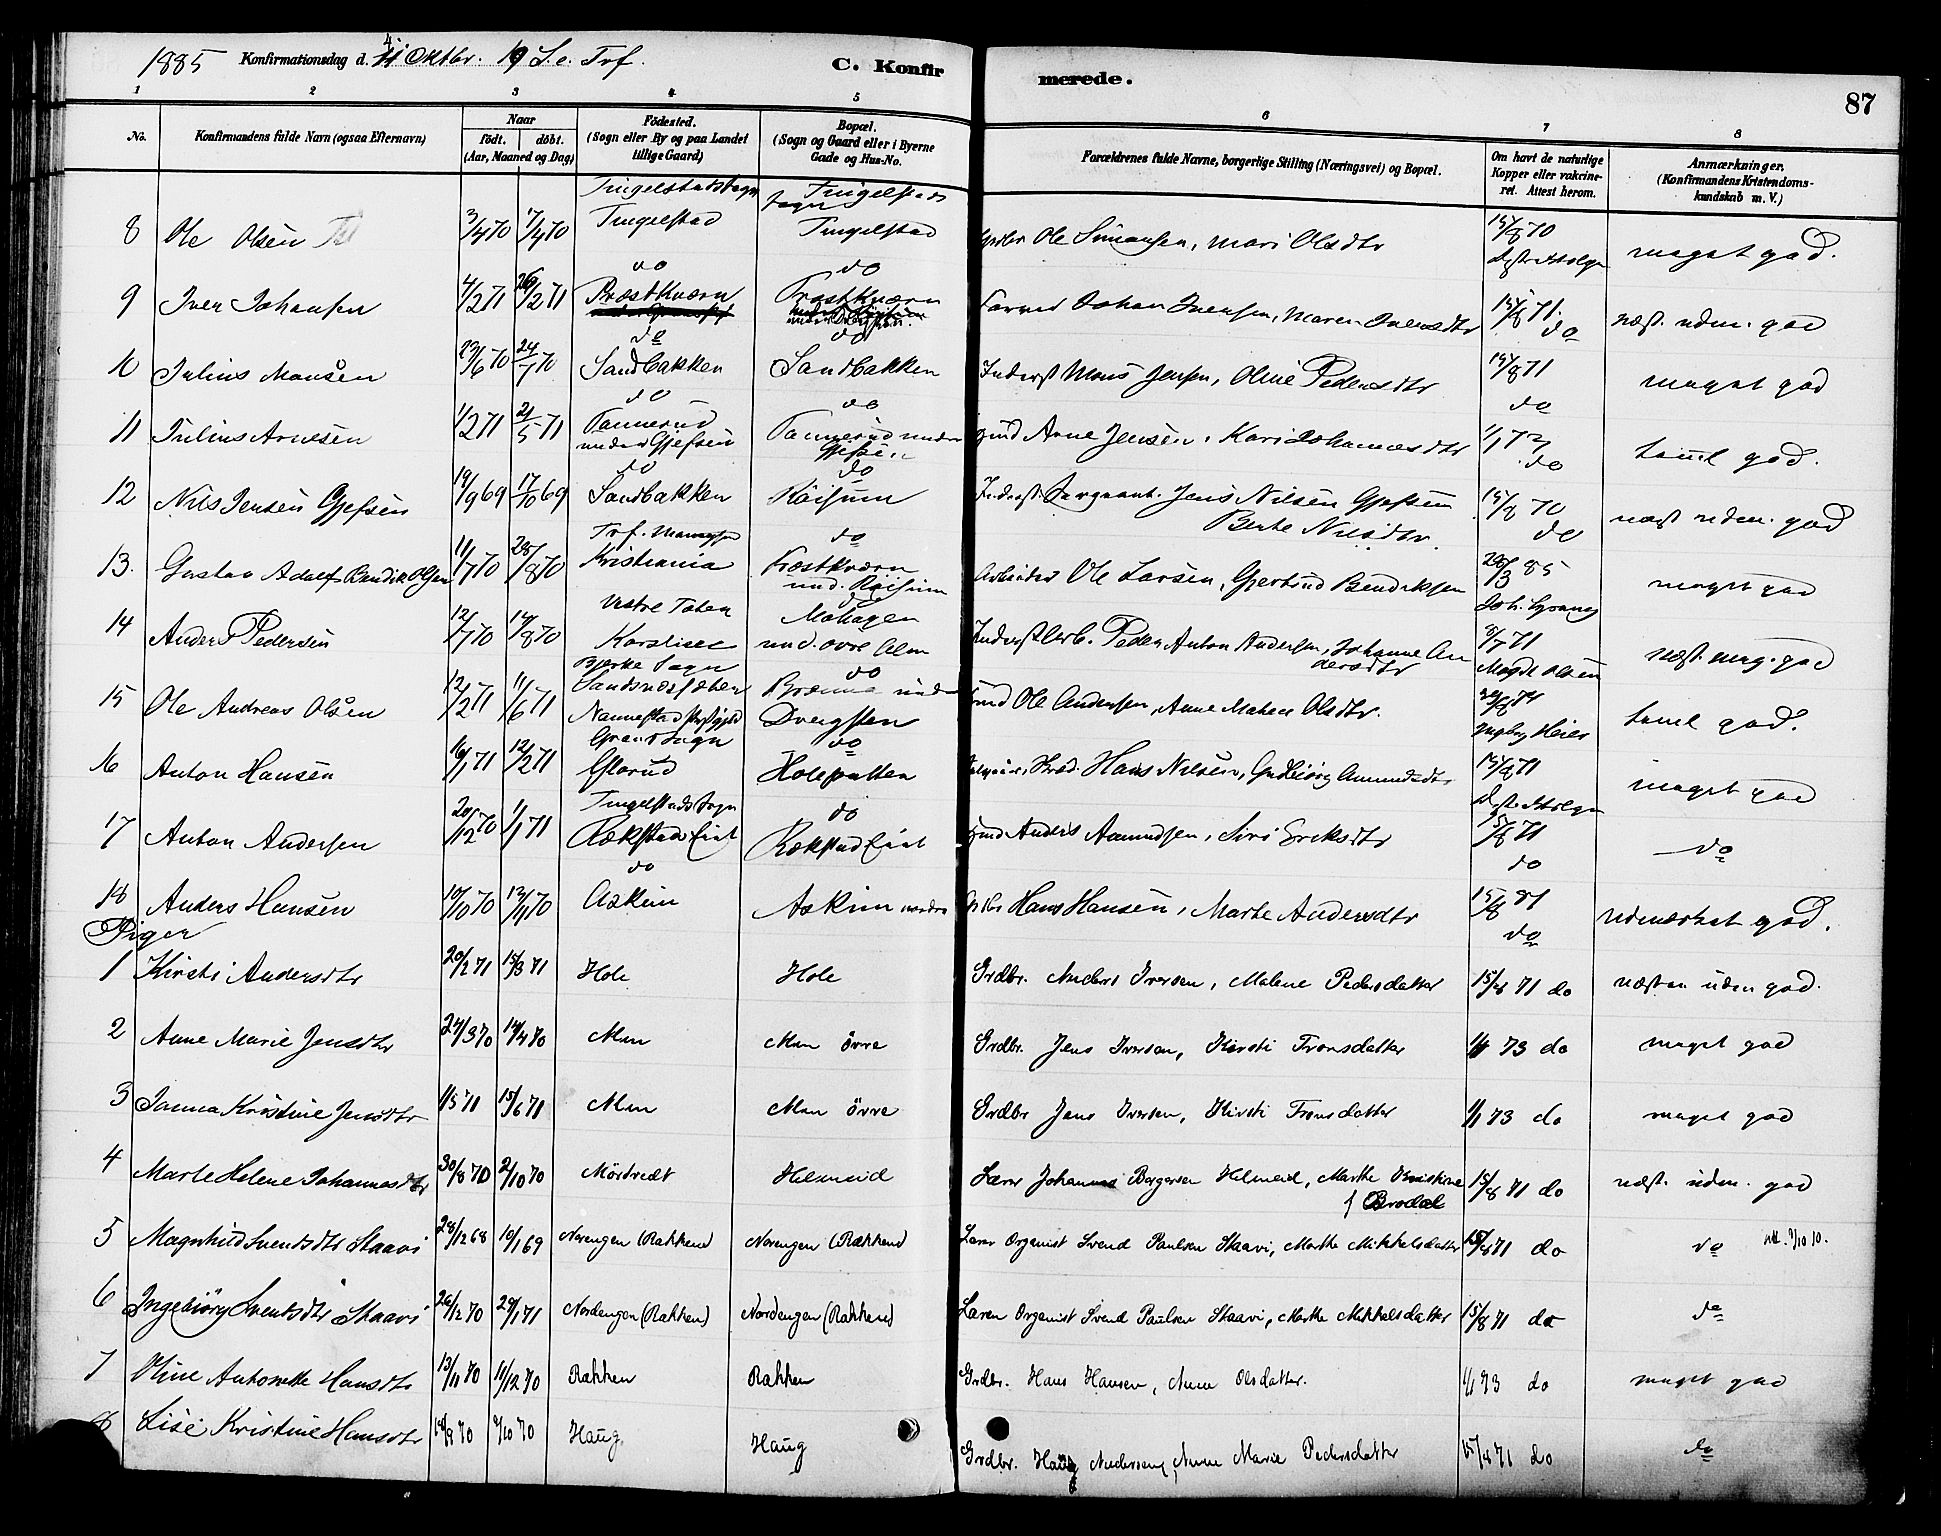 1885 Konfirmationsdag d. 4 Oktbr. 19 S. e. Tref.
C. Konfirmerede.
87
1 2 3 4 5 6 7 8
No. Konfirmandens fulde Navn (ogsaa Efternavn) Naar født. døbt. (Aar, Maaned og Dag) Födested. (Sogn eller By og paa Landet tillige Gaard) Bopæl. (Sogn og Gaard eller i Byerne Gade og Hus-No. Forældrenes fulde Navne, borgerlige Stilling (Næringsvei) og Bopæl. Om havt de naturlige Kopper eller vakcineret. Attest herom. Anmærkninger. (Konfirmandens Kristendomskundskab m. V.)
Tingelstad Sogn Tingelstads Sogn
8 Ole Olsen 3/4 70 17/4 70 Tingelstad Tingelstad Ole Simensen, Mari Olsdtr 15/8 70 meget god.
do do
9 Iver Johansen 4/2 71 26/2 71 Præstkværn Præstkværn Johan Iversen, Maren Iversdtr 15/8 71. do næst. uden. god
do do
10 Julius Monsen 23/6 70 24/7 70 Sandbakken Sandbakken Inderst Mons Jensen, Oline Pedersdtr 15/8 71 do meget god
do do
11 Julius Arnesen 1/2 71 21/5 71 Tannerud under Gjefsen Tannerud under Gjefsen Arne Jensen, Kari Johannesdtr 1/1 73 do temel god.
do do
12 Nils Jensen Gjefsen 19/9 69 17/10 69 Sandbakken Röisum Inderst Sergeant. Jens Nilsen Gjefsen 15/8 70 do næst uden. god
Berte Nilsdtr.
Trf. Menighed do
13. Gustav Adolf Bendik Olsen 11/7 70 28/8 70 Kristiania Præstkværn und. Röisum Arbeider Ole Larsen, Gjertrud Bendiksen 20/3 85 meget god
Vestre Toten do
14 Anders Pedersen 12/7 70 14/8 70 Korsliseie Mohagen und. övre Alm Peder Anton Andersen, Johanne Andersdtr 8/7 71 næst. meg. god
Bjerke Sogn do
15 Ole Andreas Olsen 12/2 71 11/6 71 Sandsnessæter Nannestad Brænna under Dvergsten Ole Andersen, Anne Malene Olsdtr. Ingbrg Heier temel god.
Grans Sogn do
16 Anton Hansen 16/1 71 12/2 71 Glorud Holeputten Hans Nilsen, Gudbjörg Amundsdtr 15/8 71 meget god
Tingelstads Sogn do
17 Anton Andersen 20/12 70 1/1 71 Rækstadeiet Rækstadeiet Anders Aamundsen, Siri Eriksdtr 15/8 71 do do
do
18 Anders Hansen 10/10 70 13/11 70 Askim Askim nordre Hans Hansen, Marte Andersdtr 15/8 81 do udmærket god.
Piger
1 Kirsti Andersdtr 20/2 71 15/3 71 Hole Hole Grdbr. Anders Iversen, Malene Pedersdatter 15/8 71 do næsten uden god.
2 Anne Marie Jensdtr 24/3 70 14/4 70 Alm Alm övre Grdbr. Jens Iversen, Kirsti Tronsdatter 1/1 73 do meget god
3 Janna Kristine Jensdtr 1/5 71 15/6 71 Alm Alm övre Grdbr Jens Iversen, Kirsti Tronsdatter 1/1 73 do meget god
4 Marte Helene Johannesdtr 30/8 70 2/10 70 Mörtvedt Helmeid Lærer Johannes Borgersen Helmeid, Marthe Kristine f Brodal 15/8 71 do næst. uden. god
5 Magnhild Svendsdtr Staavi 28/12 68 10/1 69 Norengen (Rækken) Norengen (Rækken) Lærer Organist Svend Paulsen Staavi, Marthe Mikkelsdatter 15/8 71 do do att. 7/10 10.
6 Ingebjörg Svendsdtr Staavi 26/12 70 29/1 71 Nordengen (Rækken) Nordengen (Rækken) Læren Organist Svend Paulsen Staavi, Marthe Mikkelsdatter 15/8 71 do do
7 Oline Antonette Hansdtr 13/11 70 11/12 70 Rækken Rækken Grdbr. Hans Hansen, Anne Olsdatter. 1/1 73 do meget god
8 Lise Kristine Hansdtr 18/9 70 9/10 70 Haug Haug Grdbr. Hans Andersen, Anne Marie Pedersdatter 15/8 71 do do